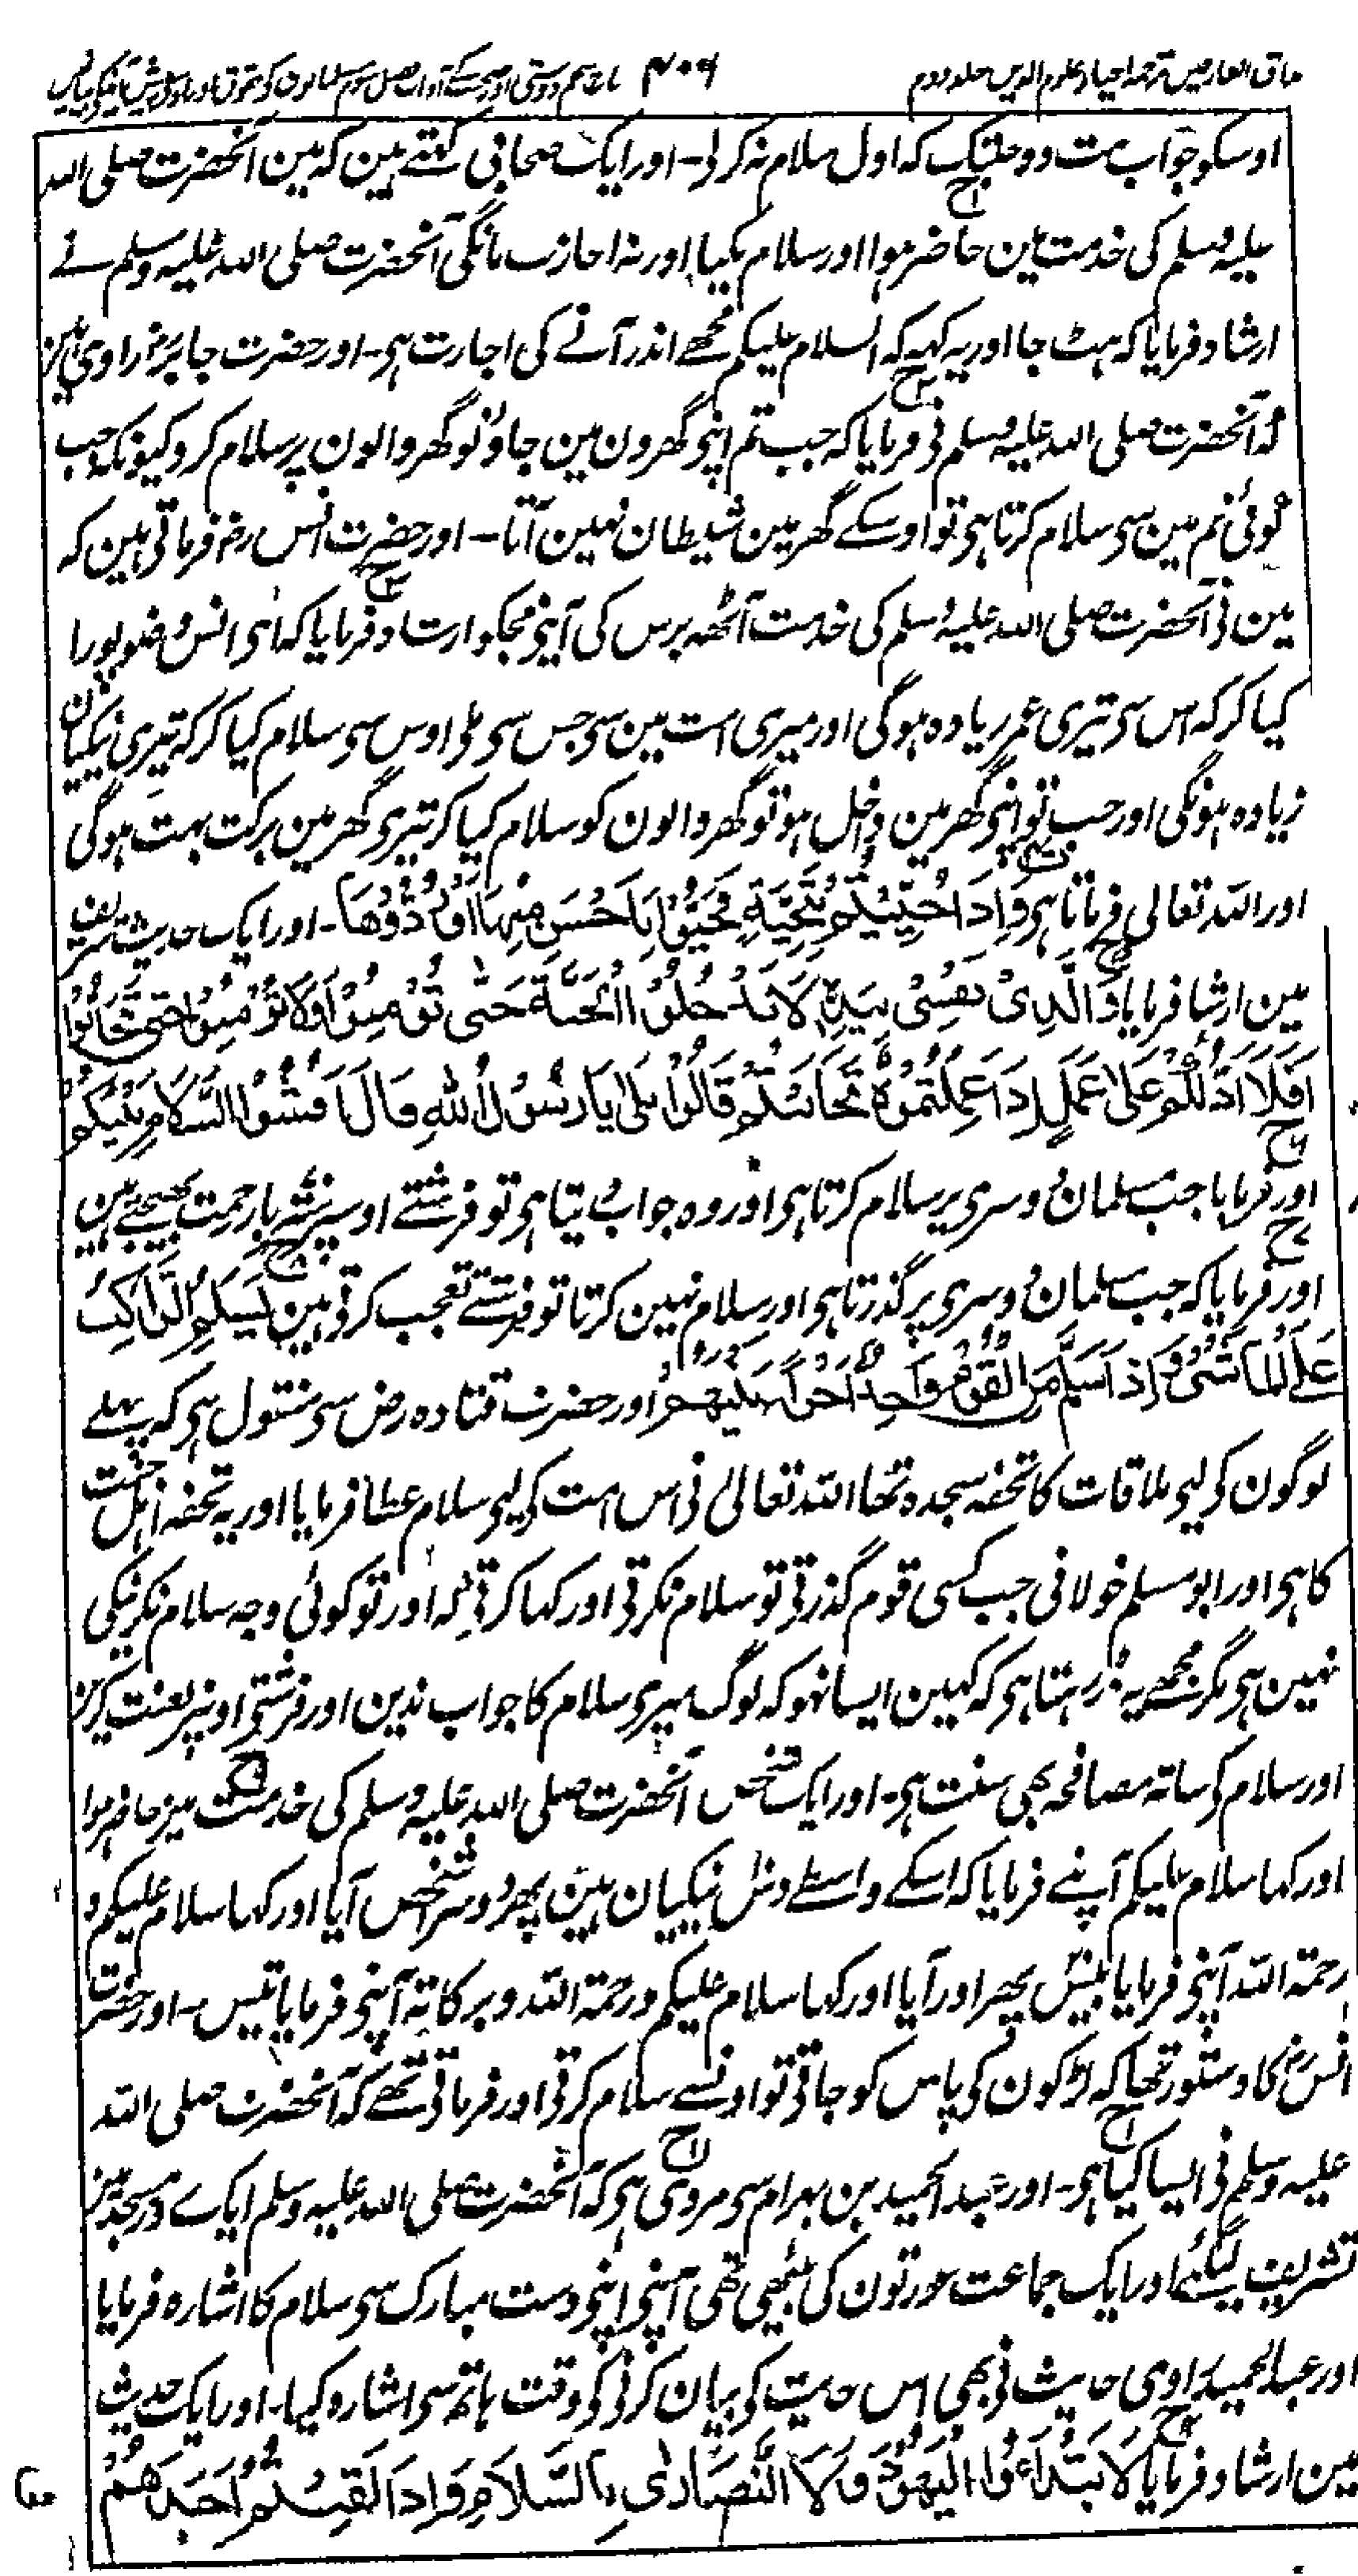 مذاق العارفین ترجمہ احیاء علوم الدین جلد دوم ۴۰۶ باب پنجم دوستی اور صحبت کے آداب فصل سوم مسلمانوں کے حقوق
اوسکو جواب مت دو جبتک کہ اول سلام نہ کرلے۔ اور ایک صحابی کہتے ہین کہ مین آنحضرت صلی اللہ
علیہ وسلم کی خدمت مین حاضر ہوا اور سلام نکیا اور نہ اجازت مانگی آنحضرت صلی اللہ علیہ وسلم نے
ارشاد فرمایا کہ ہٹ جا اور یہ کہہ کہ السلام علیکم مجھے اندر آنے کی اجازت ہی۔ اور حضرت جابر رضہ راوی ہین
کہ آنحضرت صلی اللہ علیہ وسلم نی فرمایا کہ جب تم اپنی گھرون مین جاؤ تو گھر والون پر سلام کرو کیونکہ جب
کوئی تم مین سی سلام کرتا ہی تو اوسکے گھر مین شیطان نہین آتا۔ اور حضرت انس رضہ فرماتی ہین کہ
مین نی آنحضرت صلی اللہ علیہ وسلم کی خدمت آٹھہ برس کی آپنی مجکو ارشاد فرمایا کہ ای انس وضو پورا
کیا کر کہ اس سی تیری عمر زیادہ ہوگی اور میری امت مین سی جس سی ملی اوس سی سلام کیا کر کہ تیری نیکیان
زیادہ ہونگی اور جب تو اپنی گھر مین داخل ہو تو گھر والون کو سلام کیا کر تیری گھر مین برکت بہت ہوگی
اور اللہ تعالی فرماتا ہی وَاِذَا حُیِّیْتُمْ بِتَحِیَّةٍ فَحَیُّوْا بِاَحْسَنَ مِنْهَا اَوْ رُدُّوْهَا۔ اور ایک حدیث شریف
مین ارشاد فرمایا وَالَّذِیْ نَفْسِیْ بِیَدِهٖ لَا تَدْخُلُوْا الْجَنَّةَ حَتّٰی تُؤْمِنُوْا وَلَا تُؤْمِنُوْا حَتّٰی تَحَابُّوْا
اَفَلَا اَدُلُّکُمْ عَلٰی عَمَلٍ اِذَا عَمِلْتُمُوْهُ تَحَابَبْتُمْ قَالُوْا بَلٰی یَا رَسُوْلَ اللّٰهِ قَالَ اَفْشُوا السَّلَامَ بَیْنَکُمْ
اور فرمایا جب مسلمان دوسری پر سلام کرتا ہی اور وہ جواب دیتا ہی تو فرشتے اوسپر ستر بار رحمت بھیجتے ہین
اور فرمایا کہ جب مسلمان دوسری پر گذرتا ہی اور سلام نہین کرتا تو فرشتے تعجب کرتی ہین یُسَلِّمُ الرَّاکِبُ
عَلَی الْمَاشِیْ وَاِذَا سَلَّمَ مِنَ الْقَوْمِ وَاحِدٌ اَجْزَاَ عَنْهُمْ اور حضرت قتادہ رض سی منقول ہی کہ پہلے
لوگون کی لیی ملاقات کا تحفہ سجدہ تھا اللہ تعالی نی اس امت کی لیی سلام عطا فرمایا اور یہ تحفہ اہل جنت
کا ہی اور ابو مسلم خولانی جب کسی قوم گذرتی تو سلام نکرتی اور کہا کرتی کہ اور تو کوئی وجہ سلام نکرنیکی
نہین ہی مگر مجھے یہ ڈر رہتا ہی کہ کہین ایسا نہو کہ لوگ میری سلام کا جواب ندین اور فرشتی اونپر لعنت کرین
اور سلام کی ساتہ مصافحہ بھی سنت ہی۔ اور ایک شخص آنحضرت صلی اللہ علیہ وسلم کی خدمت مین حاضر ہوا
اور کہا سلام علیکم آپنے فرمایا کہ اسکے واسطے دس نیکیان ہین پھر دوسرا شخص آیا اور کہا سلام علیکم و
رحمۃ اللہ آپنی فرمایا بیس پھر اور آیا اور کہا سلام علیکم ورحمۃ اللہ وبرکاتہ آپنی فرمایا تیس۔ اور حضرت
انس رضہ کا دستور تھا کہ لڑکون کی پاس کو جاتی تو اونسے سلام کرتی اور فرماتی تھے کہ آنحضرت صلی اللہ
علیہ وسلم نی ایسا کیا ہی۔ اور عبد الحمید بن بہرام سی مروی ہی کہ آنحضرت صلی اللہ علیہ وسلم ایک روز مسجد مین
تشریف لیگئے اور ایک جماعت عورتون کی بیٹھی تھی آپنی اپنی دست مبارک سی سلام کا اشارہ فرمایا
اور عبد الحمید راوی حدیث نی بھی اس حدیث کی بیان کرنی کی وقت ہاتھ سی اشارہ کیا۔ اور ایک حدیث
مین ارشاد فرمایا لَا تَبْتَدِءُوا الْیَهُوْدَ وَلَا النَّصَارٰی بِالسَّلَامِ وَاِذَا لَقِیْتُمْ اَحَدَهُمْ